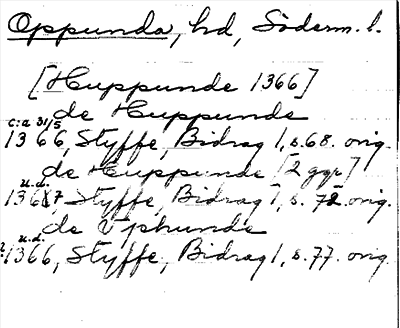 Oppunda, hd, Söderm. l.
[Huppunde 1366]
de Huppunde
c:a 31/5
1366, Styffe, Bidrag 1, s. 68. orig.
de Huppunde [2 ggr]
u.d.
1367, Styffe, Bidrag 1, s. 72. orig.
de Vphunde
u.d.
1366, Styffe, Bidrag 1, s. 77. orig.